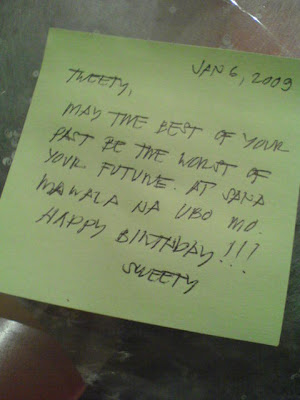 JAN 6, 2009
TWEETY,
MAY THE BEST OF YOUR
PAST BE THE WORST OF
YOUR FUTURE. AT SANA
MAWALA NA UBO MO.
HAPPY BIRTHDAY!!!
SWEETY